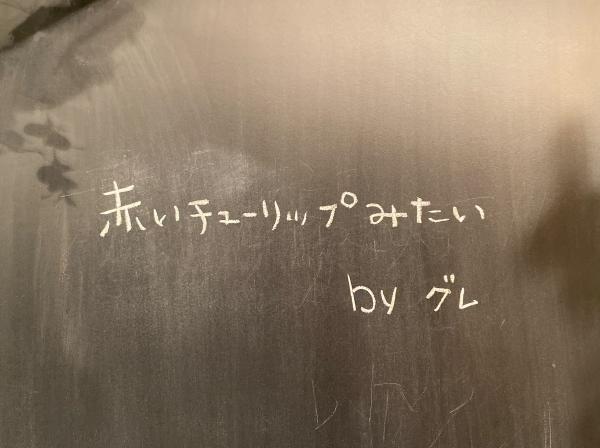 赤いチューリップみたい
by グレ